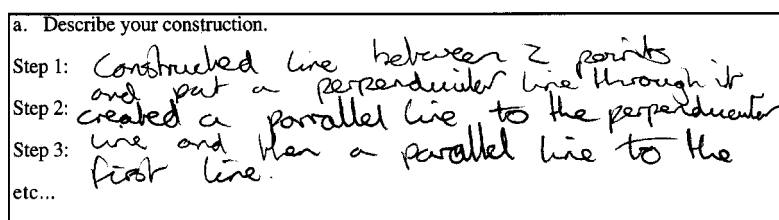 a. Describe your construction.
Step 1: Constructed line between 2 points
and put a perpendicular line through it
Step 2: created a parrallel line to the perpendicular
Step 3: line and then a parallel line to the
first line.
etc...